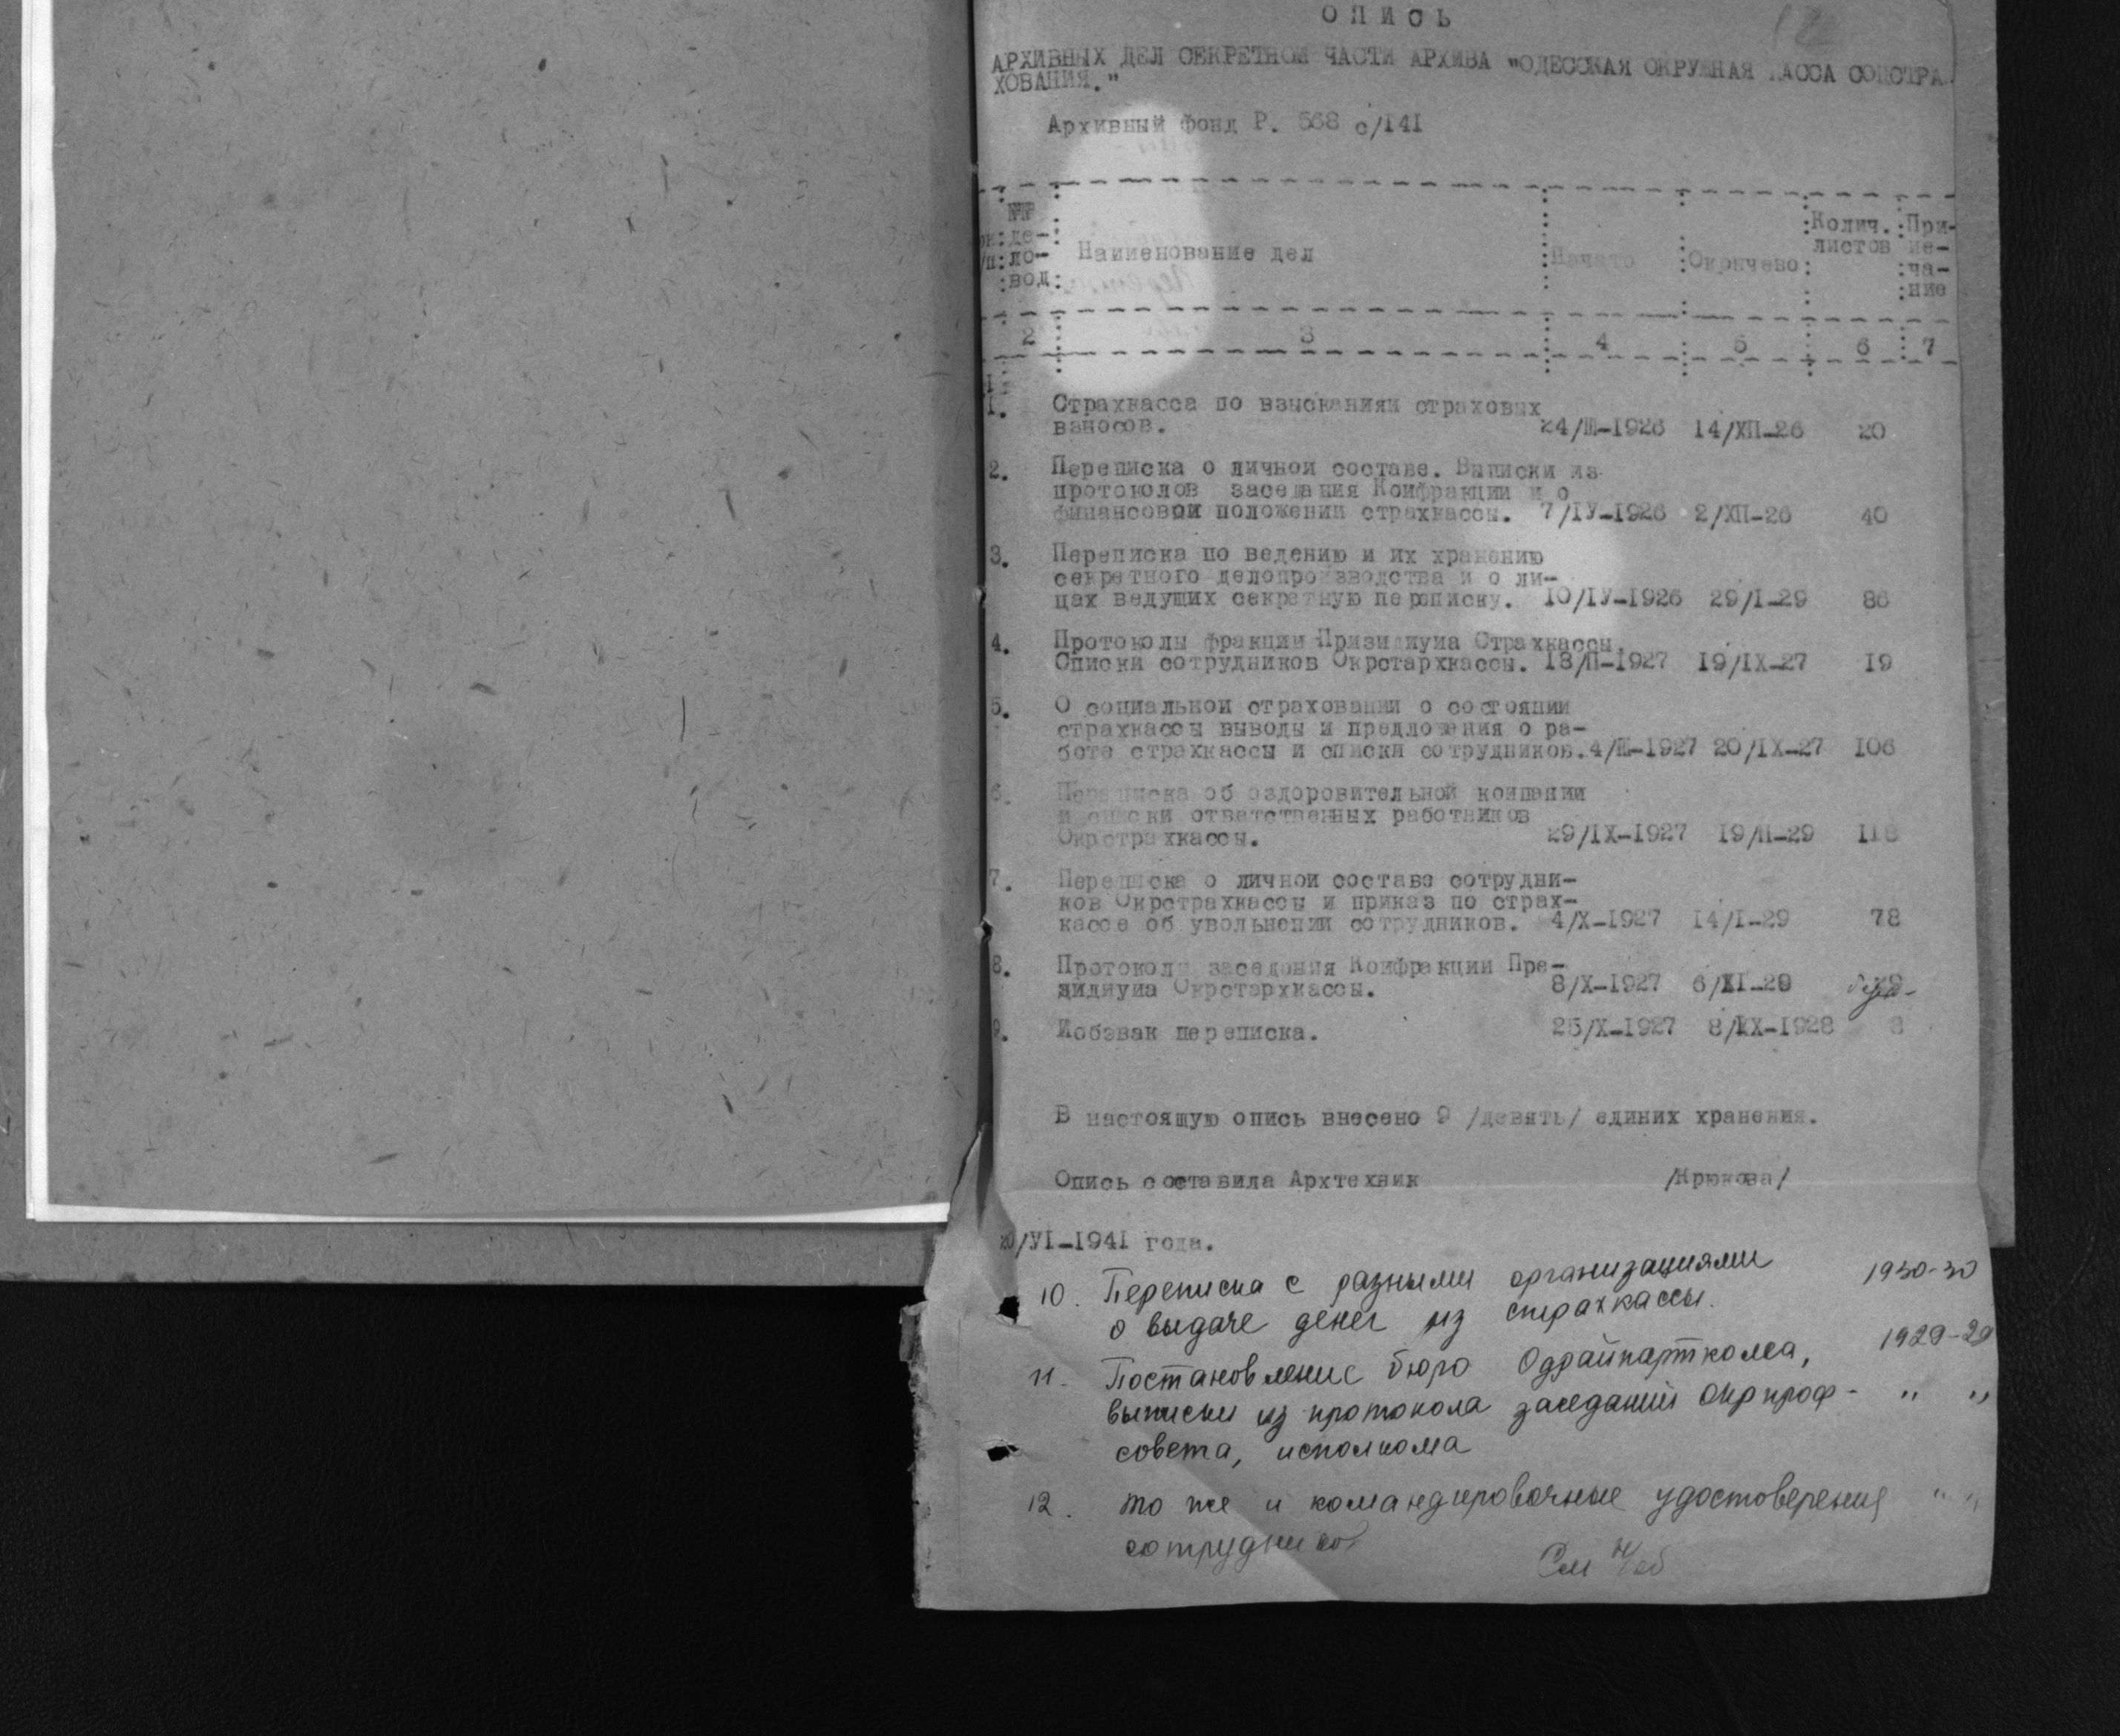 ОПИСЬ
АРХИВНЫХ ДЕЛ СЕКРЕТНОЙ ЧАСТИ АРХИВА "ОДЕССКАЯ ОКРУЖНАЯ КАССА СОЦСТРА
ХОВАНИЯ."
Архивный фонд Р. 568 с/141
№№ де-ло-вод Наименование дел Начато Окончено Колич. листов При-ме-ча-ние
2 3 4 5 6 7
1
1. Страхкасса по взысканиям страховых
взносов. 24/Ш-1926 14/ХП-26 20
2. Переписка о личном составе. Выписки из
протоколов заседания Комфракции и о
финансовом положении страхкассы. 7/IУ-1926 2/ХП-26 40
3. Переписка по ведению и их хранению
секретного делопроизводства и о ли-
цах ведущих секретную переписку. 10/IУ-1926 29/I-29 86
4. Протоколы фракции Призидиума Страхкассы.
Списки сотрудников Окрстархкассы. 18/П-1927 19/IХ-27 19
5. О социальном страховании о состоянии
страхкассы выводы и предложения о ра-
боте страхкассы и списки сотрудников. 4/Ш-1927 20/IХ-27 106
6. Переписка об оздоровительной компании
и списки ответственных работников
Окрстрахкассы. 29/IХ-1927 19/П-29
7. Переписка о личном составе сотрудни-
ков Окрстрахкассы и приказ по страх-
кассе об увольнении сотрудников. 4/Х-1927 14/I-29 78
8. Протоколы заседония Комфракции Пре-
зидиума Окрстархкассы. 8/Х-1927
9. Мобэвак переписка. 25/Х-1927 8
В настоящую опись внесено 9 /девять/ единих хранения.
Опись составила Архтехник /Крюкова/
20/УI-1941 года.
10. Переписка с разными организациями 1930-30
о выдаче денег из страхкассы.
11. Постановление бюро Одрайпарткома, 1929-29
выписки из протокола заседаний Окрпроф- " "
совета, исполкома
12. то же и командировочные удостоверения " "
сотрудников
См